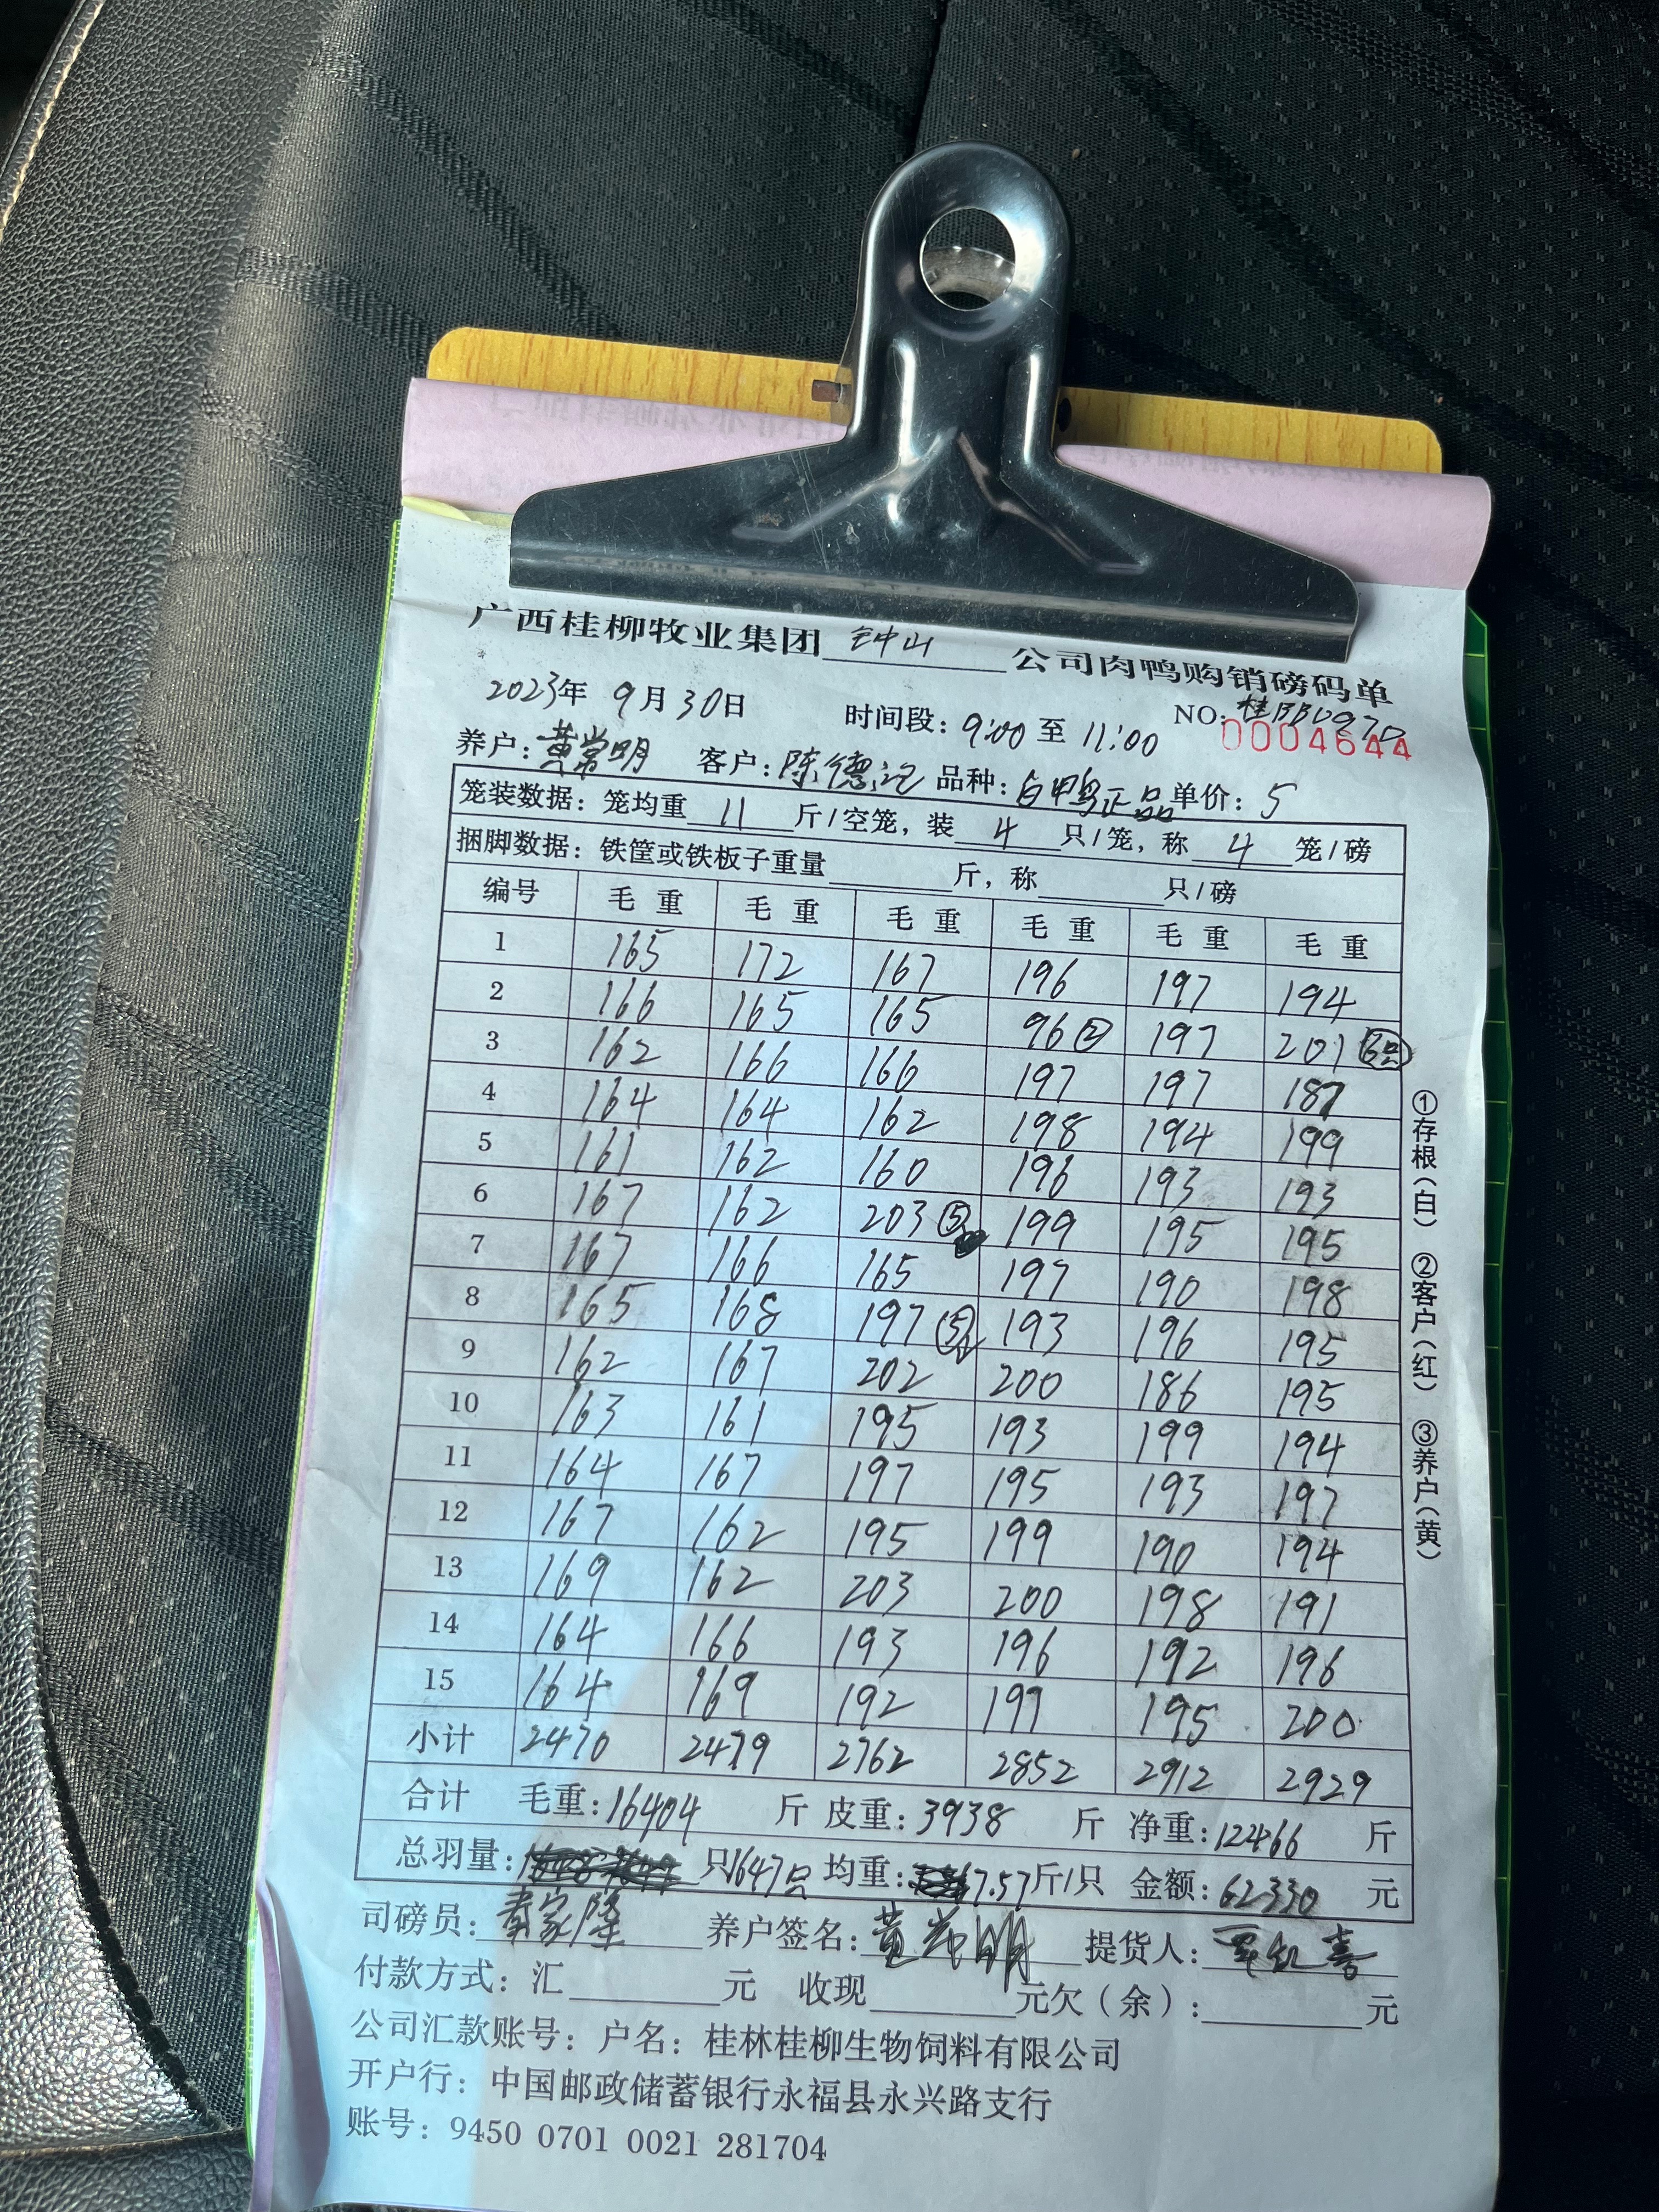 广西桂柳牧业集团 钟山 公司肉鸭购销磅码单
2023年 9月30日 时间段：9:00至11:00 NO: 0004644
养户：黄常明 客户：陈德 品种：白鸭正品 单价：5
笼装数据：笼均重 11 斤/空笼，装 4 只/笼，称 4 笼/磅
捆脚数据：铁筐或铁板子重量 斤，称 只/磅
编号 毛重 毛重 毛重 毛重 毛重 毛重
1 165 172 167 196 197 194
2 166 165 165 96② 197 201
3 162 166 166 197 197 187
4 164 164 162 198 194 199
5 161 162 160 196 193 193
6 167 162 203⑤ 199 195 195
7 167 166 165 197 190 198
8 165 168 197⑤ 193 196 195
9 162 167 202 200 186 195
10 163 161 195 193 199 194
11 164 167 197 195 193 197
12 167 162 195 199 190 194
13 169 162 203 200 198 191
14 164 166 193 196 192 196
15 164 169 192 197 195 200
小计 2470 2479 2762 2852 2912 2929
合计 毛重：16404 斤 皮重：3938 斤 净重：12466 斤
总羽量： 只1647只 均重：7.57斤/只 金额：62330 元
司磅员：秦家隆 养户签名：黄常明 提货人：
付款方式：汇 元 收现 元欠（余）： 元
公司汇款账号：户名：桂林桂柳生物饲料有限公司
开户行：中国邮政储蓄银行永福县永兴路支行
账号：9450 0701 0021 281704
①存根（白） ②客户（红） ③养户（黄）